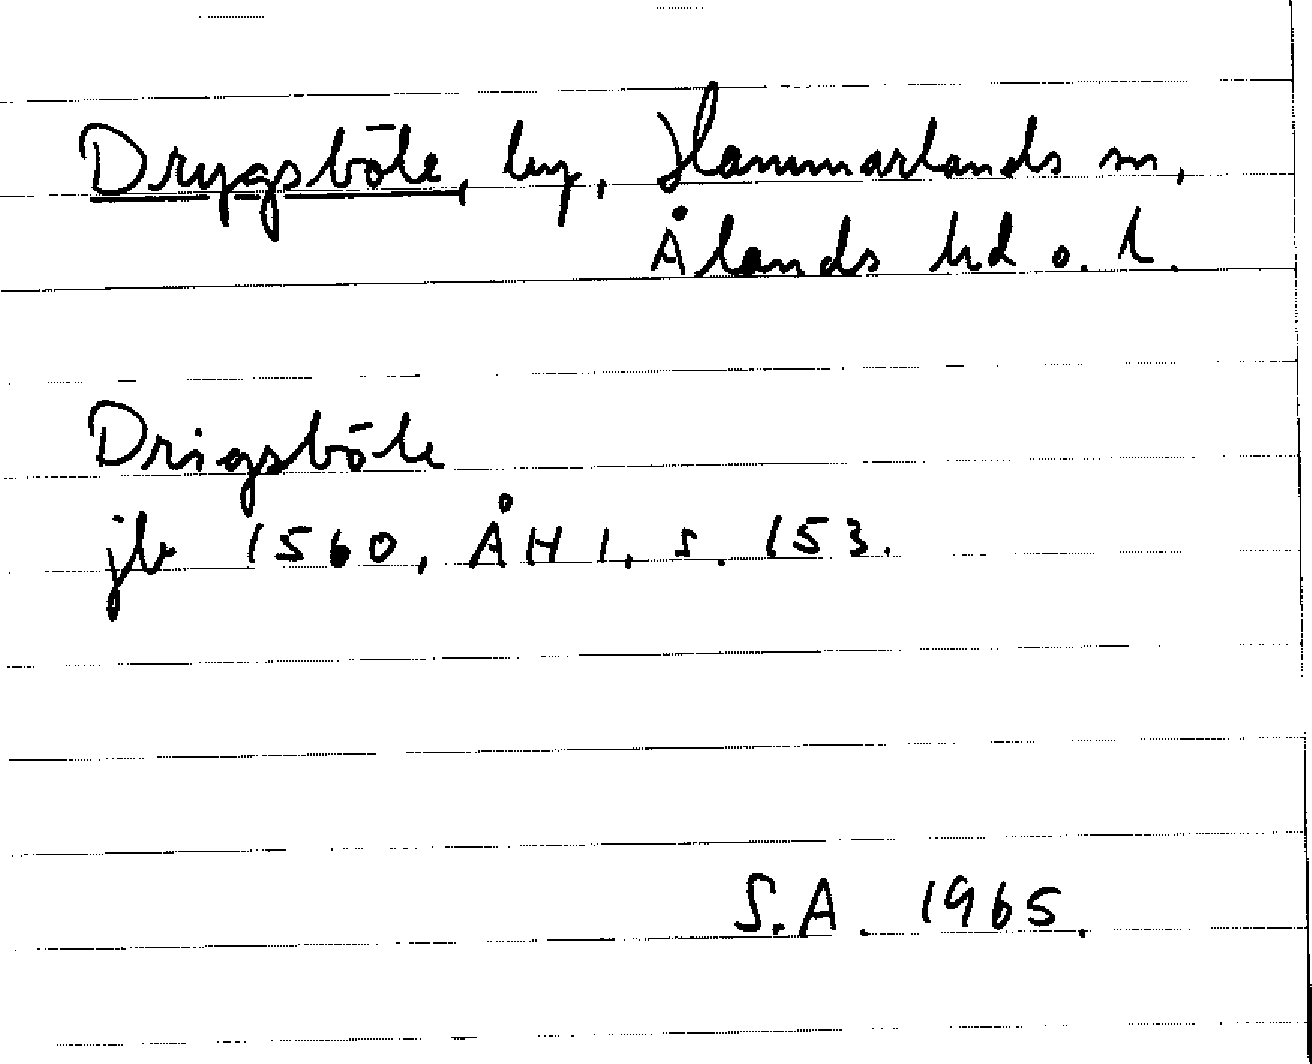 Drygsböle, by, Hammarlands sn,
Ålands hd o. l.
Drigsböle
jb 1560, ÅH 1, s. 153.
S.A. 1965.